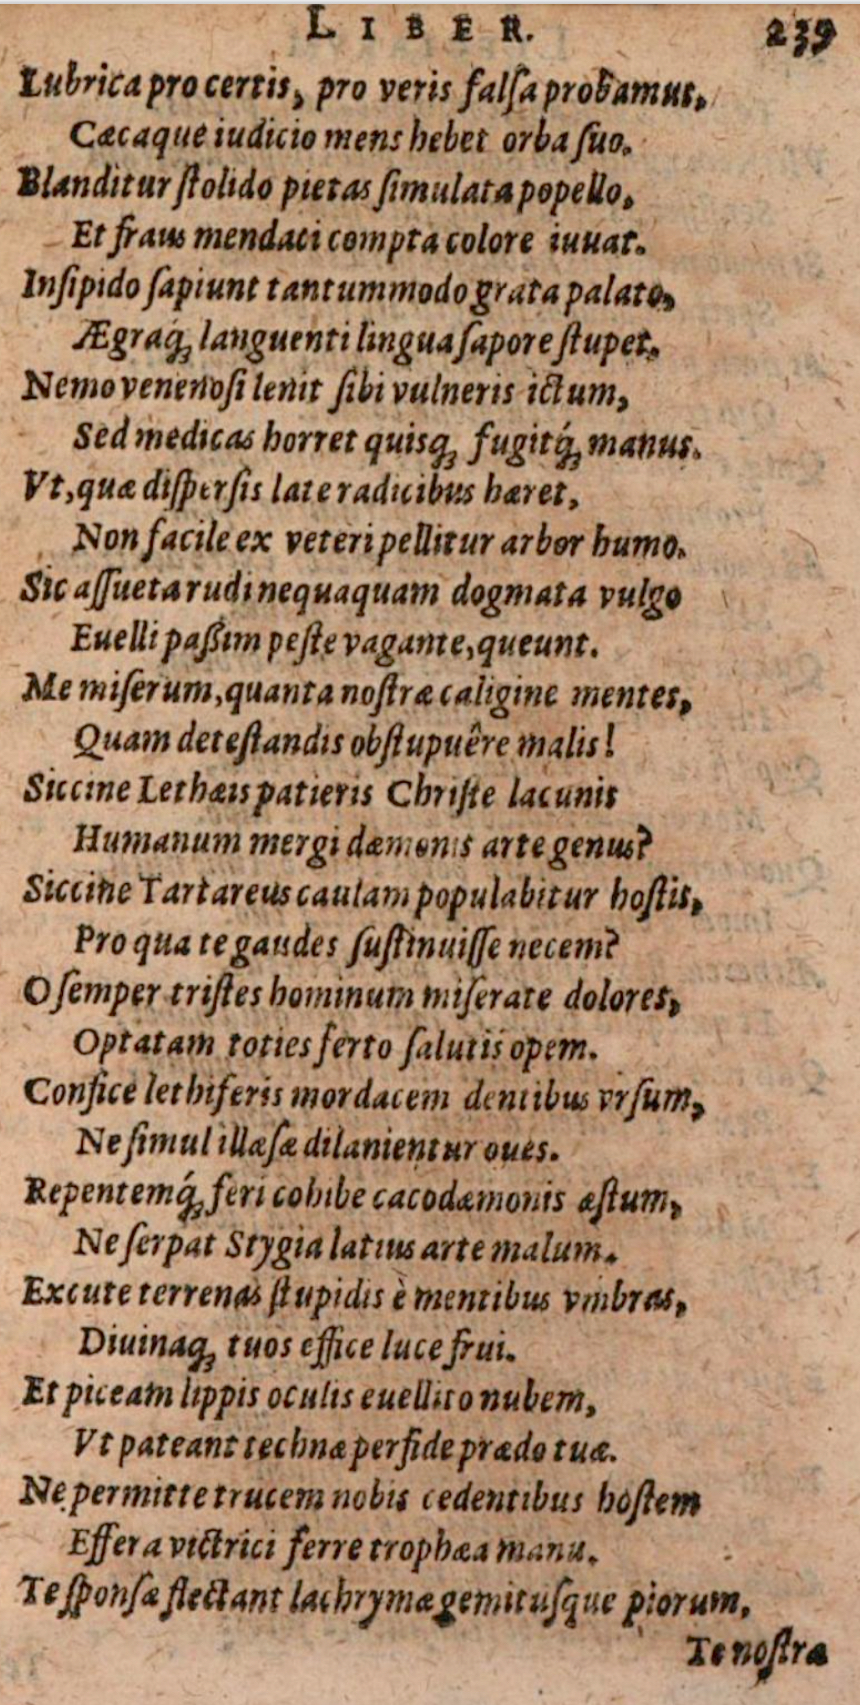 LIBER. 239
Lubrica pro certis, pro veris falſa probamus,
Cæcaque iudicio mens hebet orba ſuo.
Blanditur ſtolido pietas ſimulata popello,
Et fraus mendaci compta colore iuuat.
Inſipido ſapiunt tantummodo grata palato,
Ægraq́ꝫ languenti lingua ſapore ſtupet.
Nemo venenoſi lenit ſibi vulneris ictum,
Sed medicas horret quisqꝫ fugitq́ꝫ manus.
Vt, quæ diſperſis late radicibus hæret,
Non facile ex veteri pellitur arbor humo.
Sic aſſueta rudi nequaquam dogmata vulgo
Euelli paßim peſte vagante, queunt.
Me miſerum, quanta noſtræ caligine mentes,
Quam deteſtandis obſtupuêre malis!
Siccine Lethæis patieris Chriſte lacunis
Humanum mergi dæmonis arte genus?
Siccine Tartareus caulam populabitur hoſtis,
Pro qua te gaudes ſuſtinuiſſe necem?
O ſemper triſtes hominum miſerate dolores,
Optatam toties ferto ſalutis opem.
Confice lethiferis mordacem dentibus vrſum,
Ne ſimul illæſæ dilanientur oues.
Repentemq́ꝫ feri cohibe cacodæmonis æſtum,
Ne ſerpat Stygia latius arte malum.
Excute terrenas ſtupidis è mentibus vmbras,
Diuinaqꝫ tuos effice luce frui.
Et piceam lippis oculis euellito nubem,
Vt pateant technæ perfide prædo tuæ.
Ne permitte trucem nobis cedentibus hoſtem
Effera victrici ferre trophæa manu.
Te ſponſæ flectant lachrymæ gemituſque piorum,
Te noſtra